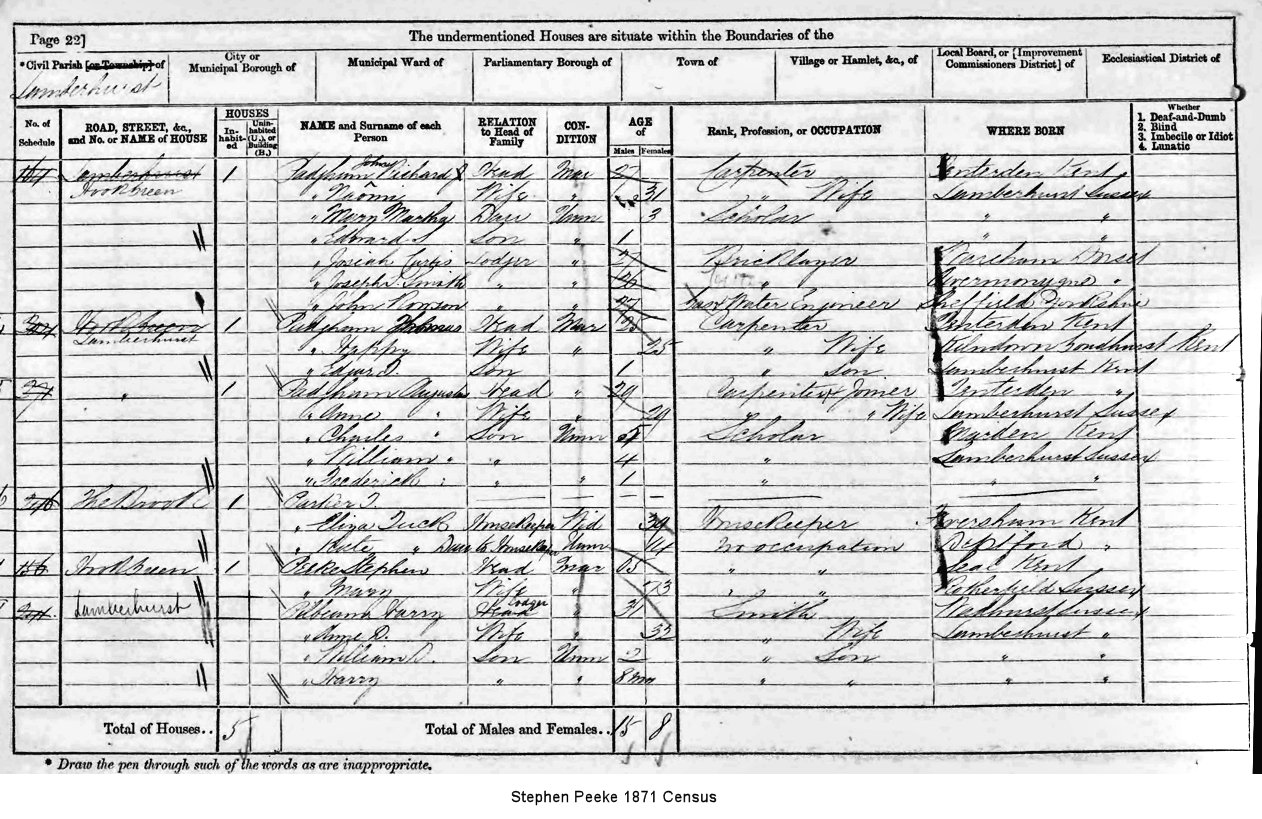 Page 22]
The undermentioned Houses are situate within the Boundaries of the
*Civil Parish [or Township] of
City or Municipal Borough of
Municipal Ward of
Parliamentary Borough of
Town of
Village or Hamlet, &c., of
Local Board, or [Improvement Commissioners District] of
Ecclesiastical District of
Lamberhurst
No. of Schedule
ROAD, STREET, &c., and No. or NAME of HOUSE
HOUSES
In-habit-ed
Unin-habited (U.), or Building (B.)
NAME and Surname of each Person
RELATION to Head of Family
CON-DITION
AGE of
Males Females
Rank, Profession, or OCCUPATION
WHERE BORN
Whether
1. Deaf-and-Dumb
2. Blind
3. Imbecile or Idiot
4. Lunatic
Lamberhurst 1 Padgham Richard Head Mar Carpenter Tenterden Kent
Hook Green " Naomi Wife " 31 " Wife Lamberhurst Sussex
" Mary Martha Daur Unm 3 Scholar " "
" Edward S. Son " 1 " "
" Josiah Curtis Lodger " 27 Bricklayer Wareham Dorset
" Joseph Smith " " "
" John Rowson " " 27 Water Engineer Sheffield Yorkshire
Hook Green 1 Padgham Thomas Head Mar Carpenter Tenterden Kent
Lamberhurst " Wife " 25 " Wife Kilndown Goudhurst Kent
" Son 1 " Son Lamberhurst Kent
" 1 Padgham Augustus Head " 29 Carpenter & Joiner Tenterden "
" Anne " Wife " 29 " Wife Lamberhurst Sussex
" Charles " Son Unm 5 Scholar Marden Kent
" William " " 4 " Lamberhurst Sussex
" Frederick " " " 1 " " "
The Brook 1
" Eliza Tuck Housekeeper Wid 39 Housekeeper Kent
" Kate " Daur to Housekeeper Unm 14 No occupation Deptford "
Hook Green 1 Peeke Stephen Head Mar 65 " " Seal Kent
" Mary Wife " 73 " " Rotherfield Sussex
Lamberhurst Harry Lodger " 31 Smith Wadhurst Sussex
" Anne D. Wife " 32 " Wife Lamberhurst "
" William D. Son Unm 2 " Son " "
" Harry " " 8 mo " " " "
Total of Houses.. 5 Total of Males and Females.. 15 8
* Draw the pen through such of the words as are inappropriate.
Stephen Peeke 1871 Census